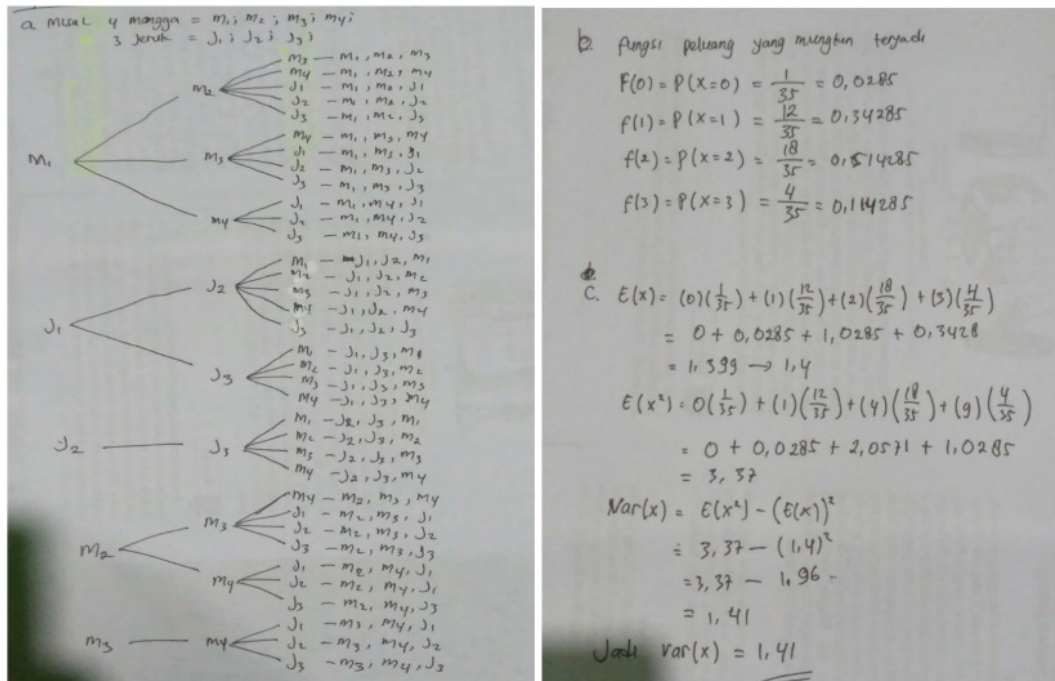 a. Misal 4 mangga = m1; m2; m3; m4;
3 Jeruk = J1; J2; J3;
M1
m2
m3 — m1, m2, m3
m4 — m1, m2, m4
J1 — m1, m2, J1
J2 — m1, m2, J2
J3 — m1, m2, J3
m3
m4 — m1, m3, m4
J1 — m1, m3, J1
J2 — m1, m3, J2
J3 — m1, m3, J3
m4
J1 — m1, m4, J1
J2 — m1, m4, J2
J3 — m1, m4, J3
J1
J2
m1 — J1, J2, m1
m2 — J1, J2, m2
m3 — J1, J2, m3
m4 — J1, J2, m4
J3 — J1, J2, J3
J3
m1 — J1, J3, m1
m2 — J1, J3, m2
m3 — J1, J3, m3
m4 — J1, J3, m4
J2
J3
m1 — J2, J3, m1
m2 — J2, J3, m2
m3 — J2, J3, m3
m4 — J2, J3, m4
m2
m3
m4 — m2, m3, m4
J1 — m2, m3, J1
J2 — m2, m3, J2
J3 — m2, m3, J3
m4
J1 — m2, m4, J1
J2 — m2, m4, J1
J3 — m2, m4, J3
m3
m4
J1 — m3, m4, J1
J2 — m3, m4, J2
J3 — m3, m4, J3
b. fungsi peluang yang mungkin terjadi
F(0) = P(x=0) = 1/35 = 0,0285
f(1) = P(x=1) = 12/35 = 0,34285
f(2) = P(x=2) = 18/35 = 0,514285
f(3) = P(x=3) = 4/35 = 0,114285
C. E(x) = (0)(1/35) + (1)(12/35) + (2)(18/35) + (3)(4/35)
= 0 + 0,0285 + 1,0285 + 0,3428
= 1,399 → 1,4
E(x²) = 0(1/35) + (1)(12/35) + (4)(18/35) + (9)(4/35)
= 0 + 0,0285 + 2,0571 + 1,0285
= 3,37
Var(x) = E(x²) - (E(x))²
= 3,37 - (1,4)²
= 3,37 - 1,96
= 1,41
Jadi var(x) = 1,41